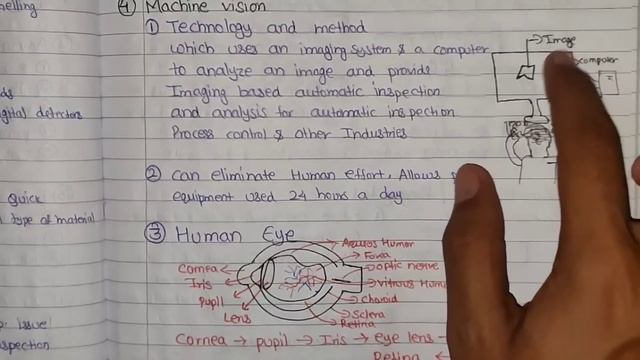 nelling
④ Machine vision
① Technology and method
which uses an imaging system & a computer
to analyze an image and provide
Imaging based automatic inspection
and analysis for automatic inspection
Process control & other Industries
Image
computer
igital detectors
② can eliminate Human effort, Allows
equipment used 24 hours a day
Quick
type of material
③ Human Eye
Cornea
Iris
Pupil
Lens
Aqueos Humor
Fovea
optic nerve
vitrous Hum
Choroid
Sclera
Retina
Cornea → pupil → Iris → eye lens →
Retina ←
issue
spection